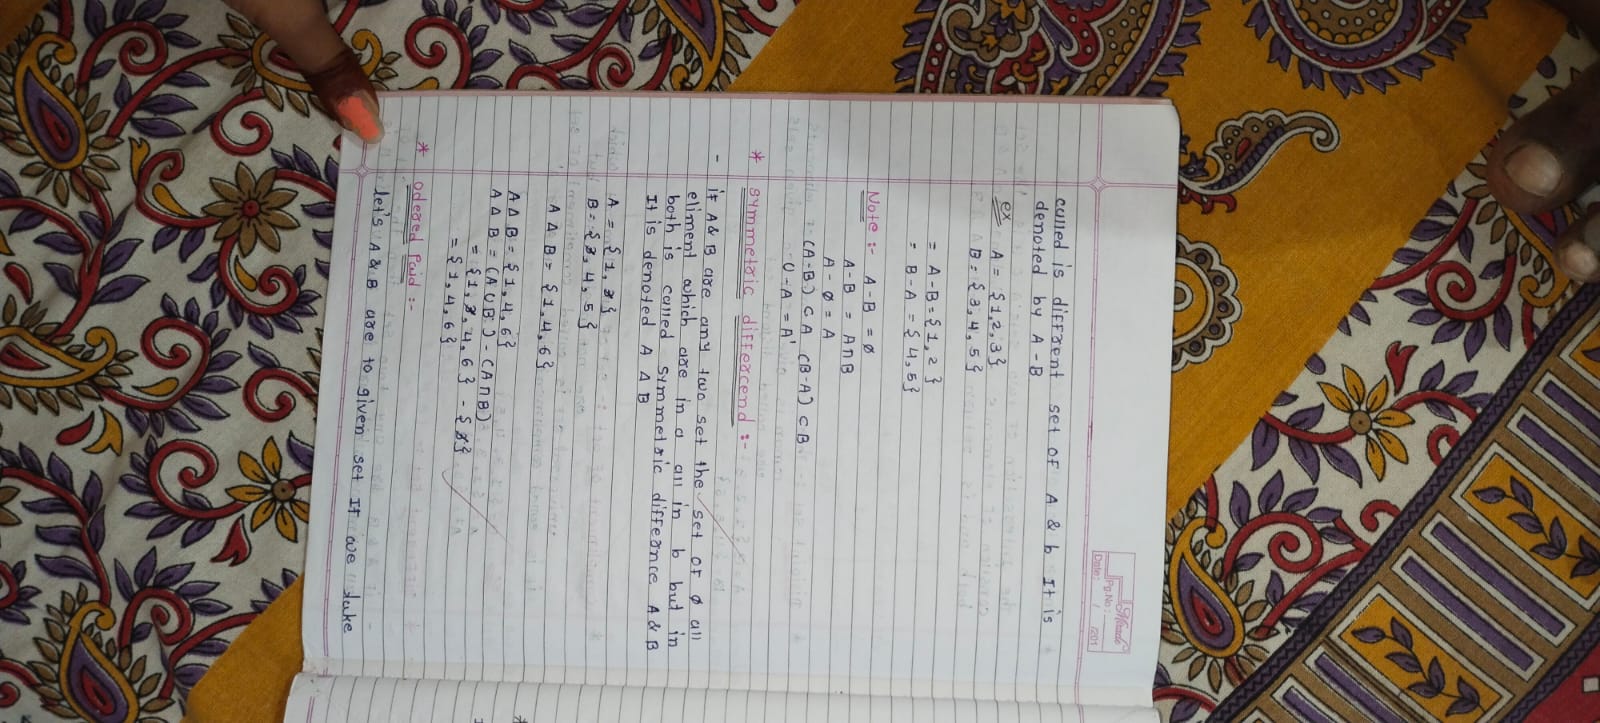 Pg.No:
Date: / /201
called is different set of A & b It is
denoted by A - B
ex A = {1,2,3}
B = {3,4,5}
= A-B = {1,2}
= B-A = {4,5}
Note :- A-B = ø
A-B = A∩B
A - ø = A
(A-B) ⊂ A (B-A) ⊂ B
U - A = A'
* symmetric differcend :-
- if A & B are any two set the set of ø all
eliment which are in a all in b but in
both is called symmetric differnce A & B
It is denoted A Δ B
A = {1,3}
B = {3,4,5}
A Δ B = {1,4,6}
A Δ B = {1,4,6}
A Δ B = (A∪B) - (A∩B)
= {1,3,4,6} - {3}
= {1,4,6}
* odered Paid :-
let's A & B are to given set If we take